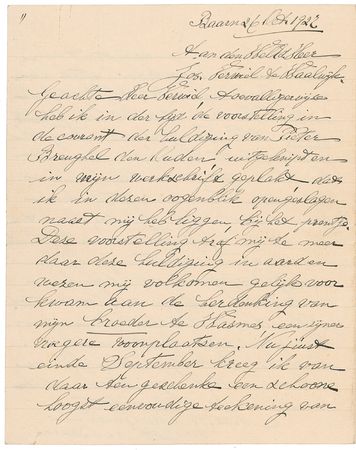 "
Baarn 26 Oct. 1927
Aan den Weled. Heer
Jos. Verwiel te Waalwijk.
Geachte Heer Verwiel, toevalligerwijs
heb ik in der tijd de voorstelling in
de courant der huldiging van Pieter
Breughel den Ouden, uitgeknipt en
in mijn werkschrift geplakt dat
ik in dezen oogenblik opengeslagen
naast mij heb liggen, bij het prentje.
Deze voorstelling trof mij te meer
daar deze huldiging in aard en
wezen mij volkomen gelijk voor
kwam aan de herdenking van
mijn broeder te Wasmes, een zijner
vroegere woonplaatsen. Nu juist
einde September kreeg ik van
daar ten geschenke een schoone
hoogst eenvoudige teekening van